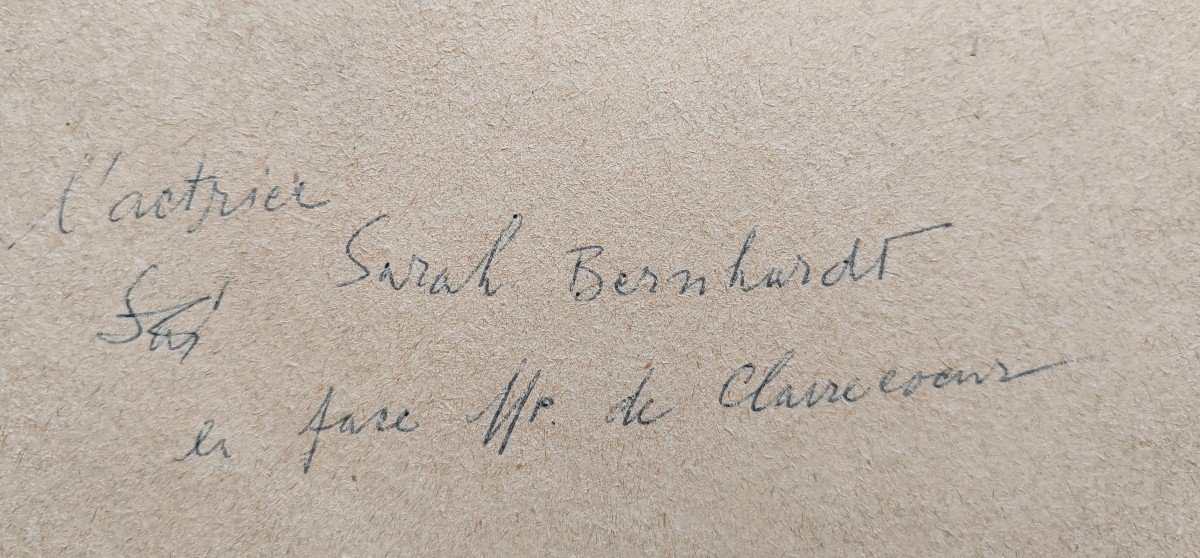 l'actrice
Sarah Bernhardt
en face Mr. de Clairecoeur